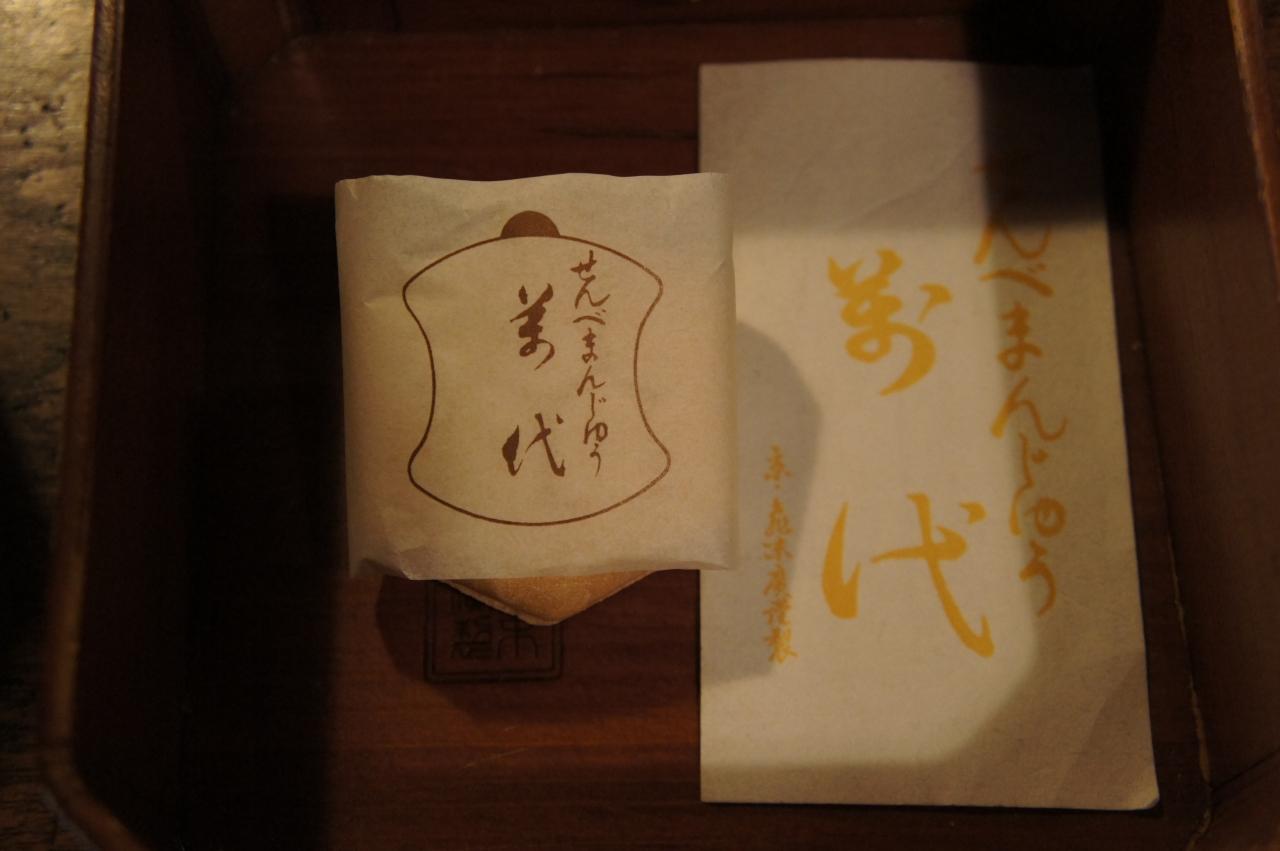 せんべまんじゆう
萬代
せんべまんじゆう
萬代
京・亀末廣謹製